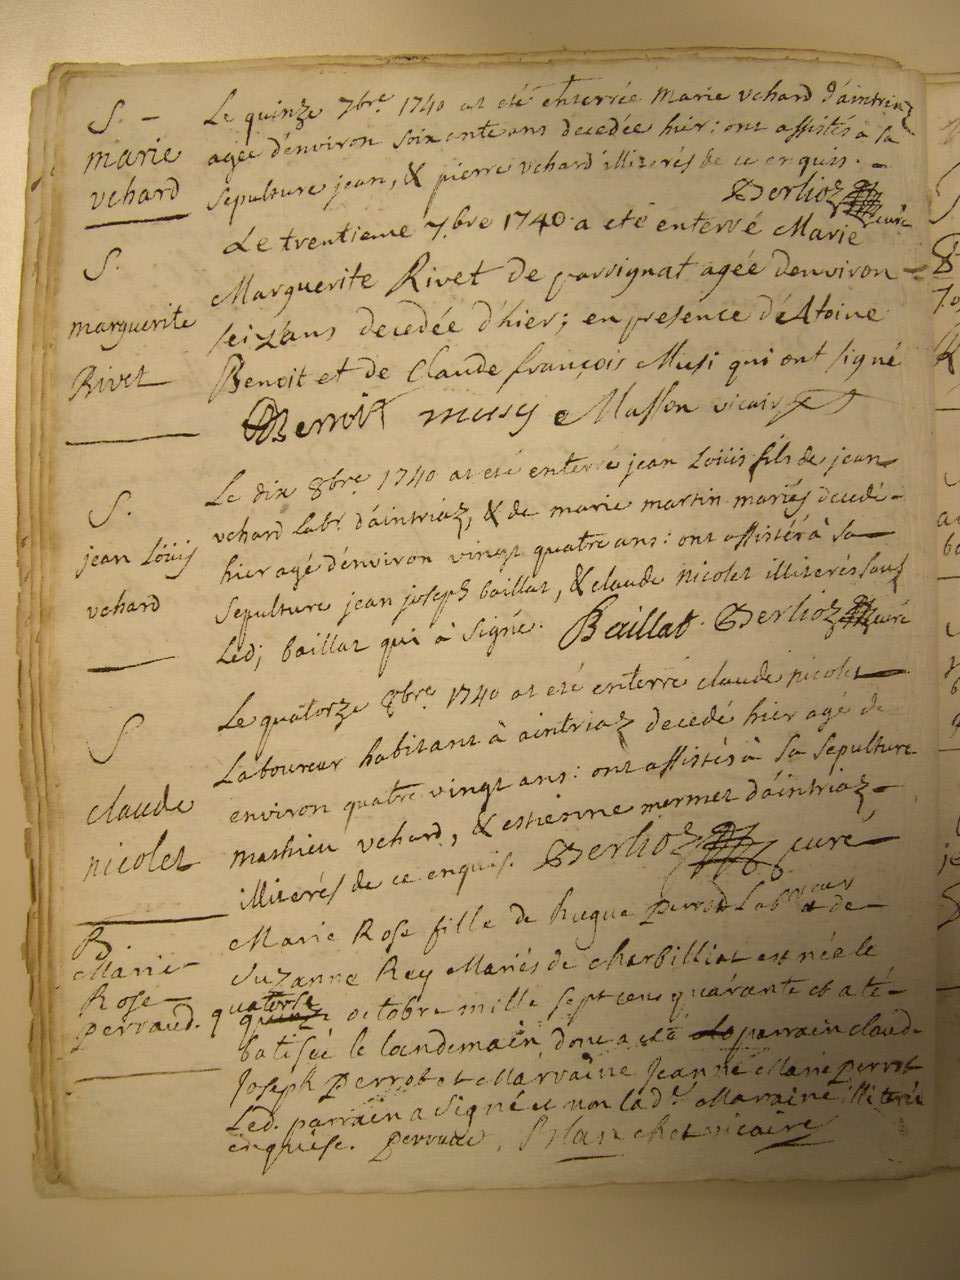 S. -
marie
vchard
Le quinze 7bre 1740 at eté enterrée marie vchard d'aintriaz
agée d'environ soixante ans decedée hier: ont assistés à sa
sepulture jean, & pierre vchard illiterés de ce enquis. -
Berlioz curé
S.
marguerite
Rivet
Le trentieme 7.bre 1740 a eté enterré Marie
Marguerite Rivet de parsignat agée denviron
seiz ans decedée d'hier; en presence d'Atoine
Benoit et de Claude françois Musi qui ont signé
Benoit mussy Masson vicair
S.
jean Loüis
vchard
Le dix 8bre 1740 at eté enterré jean Loüis fils de jean
vchard Labr. d'aintriaz, & de marie martin mariés decedé
hier agé d'environ vingt quatre ans: ont assistés à sa
sepulture jean joseph baillat, & claude nicolet illiterés sauf
Led; baillat qui à signé. Baillat. Berlioz curé
S
claude
nicolet
Le quatorze 8bre 1740 at eté enterré claude nicolet
Laboureur habitant à aintriaz decedé hier agé de
environ quatre vingt ans: ont assistés à sa sepulture
mathieu vchard, & estienne mermet d'aintriaz
illiterés de ce enquis. Berlioz curé
B.
Marie
Rose
perraud.
Marie Rose fille de hugue perrot Labour et de
Suzanne Rey Mariés de charbilliat est née le
quatorse octobre mille sept cens quarante et a té
batisée le landemain, dont a eté parrain claude
Joseph perrot et Marraine Jeanne Marie perrot
Led. parrain a signé et non lad.e Maraine illiterée
enquise. perraud, Blanchet vicaire